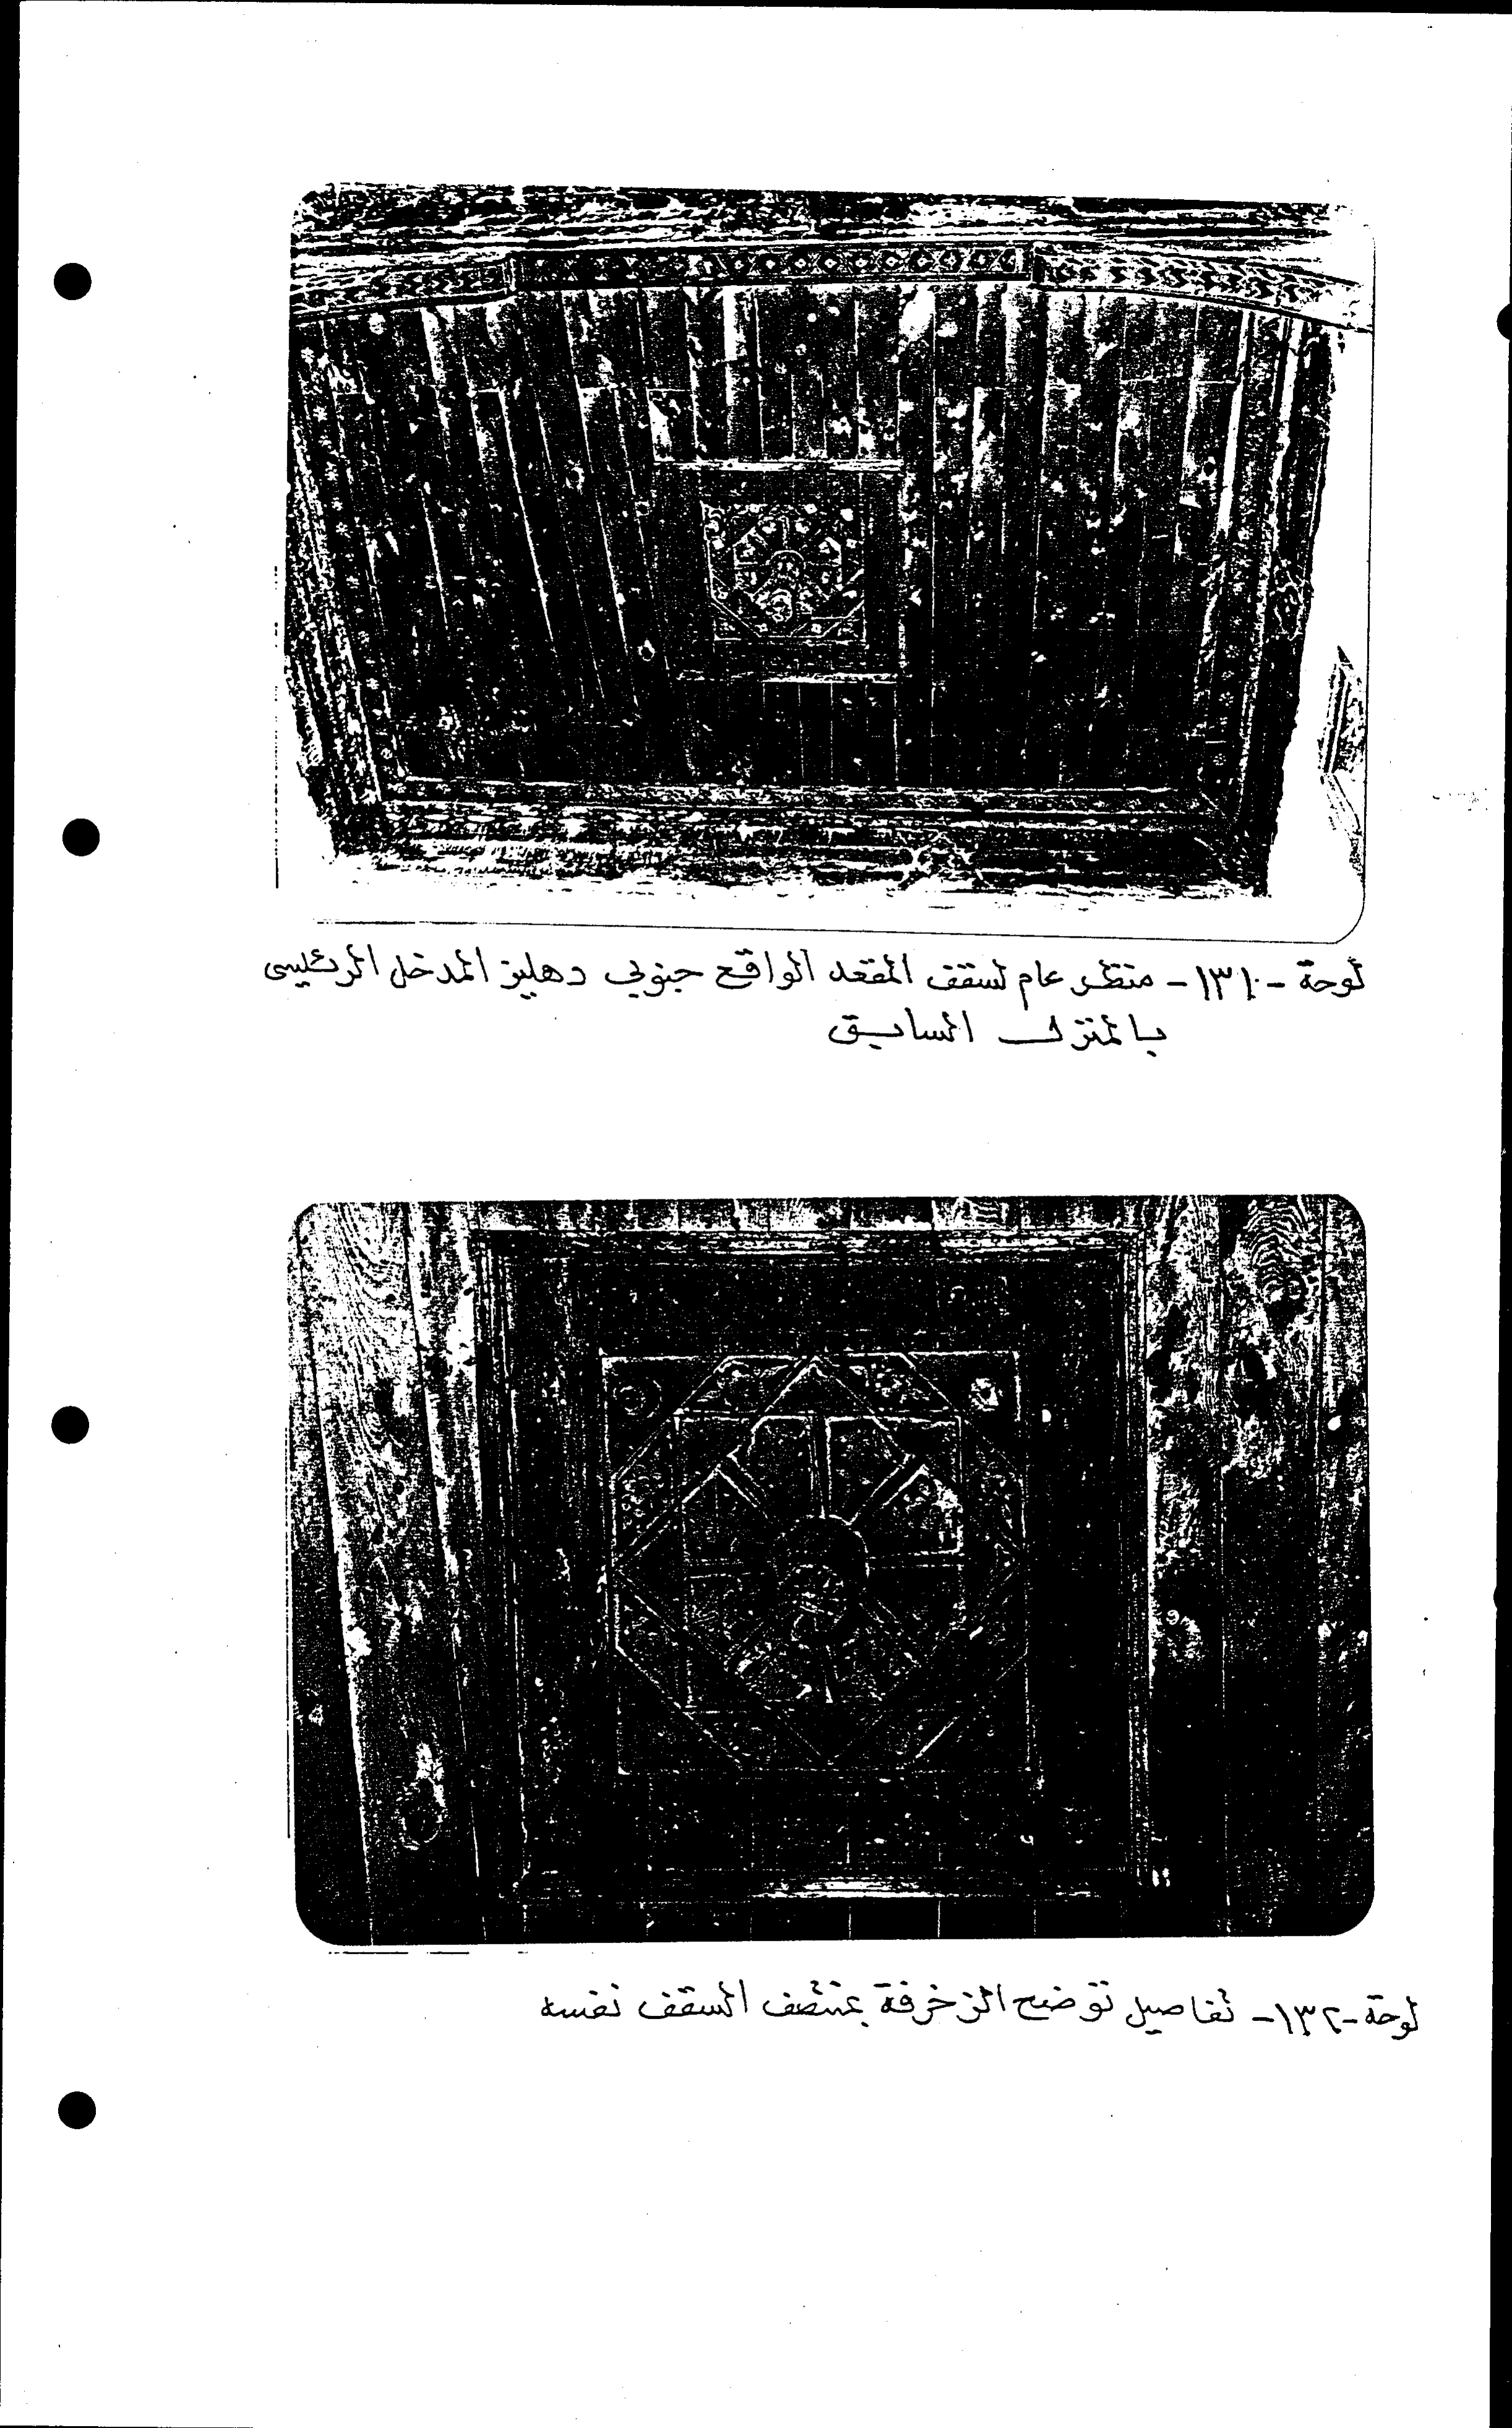 لوحة - ١٣١ - منظر عام لسقف المقعد الواقع جنوبي دهليز المدخل الرئيسى
بالمنزل السابق
لوحة - ١٣٢ - تفاصيل توضح الزخرفة بمنتصف السقف نفسه